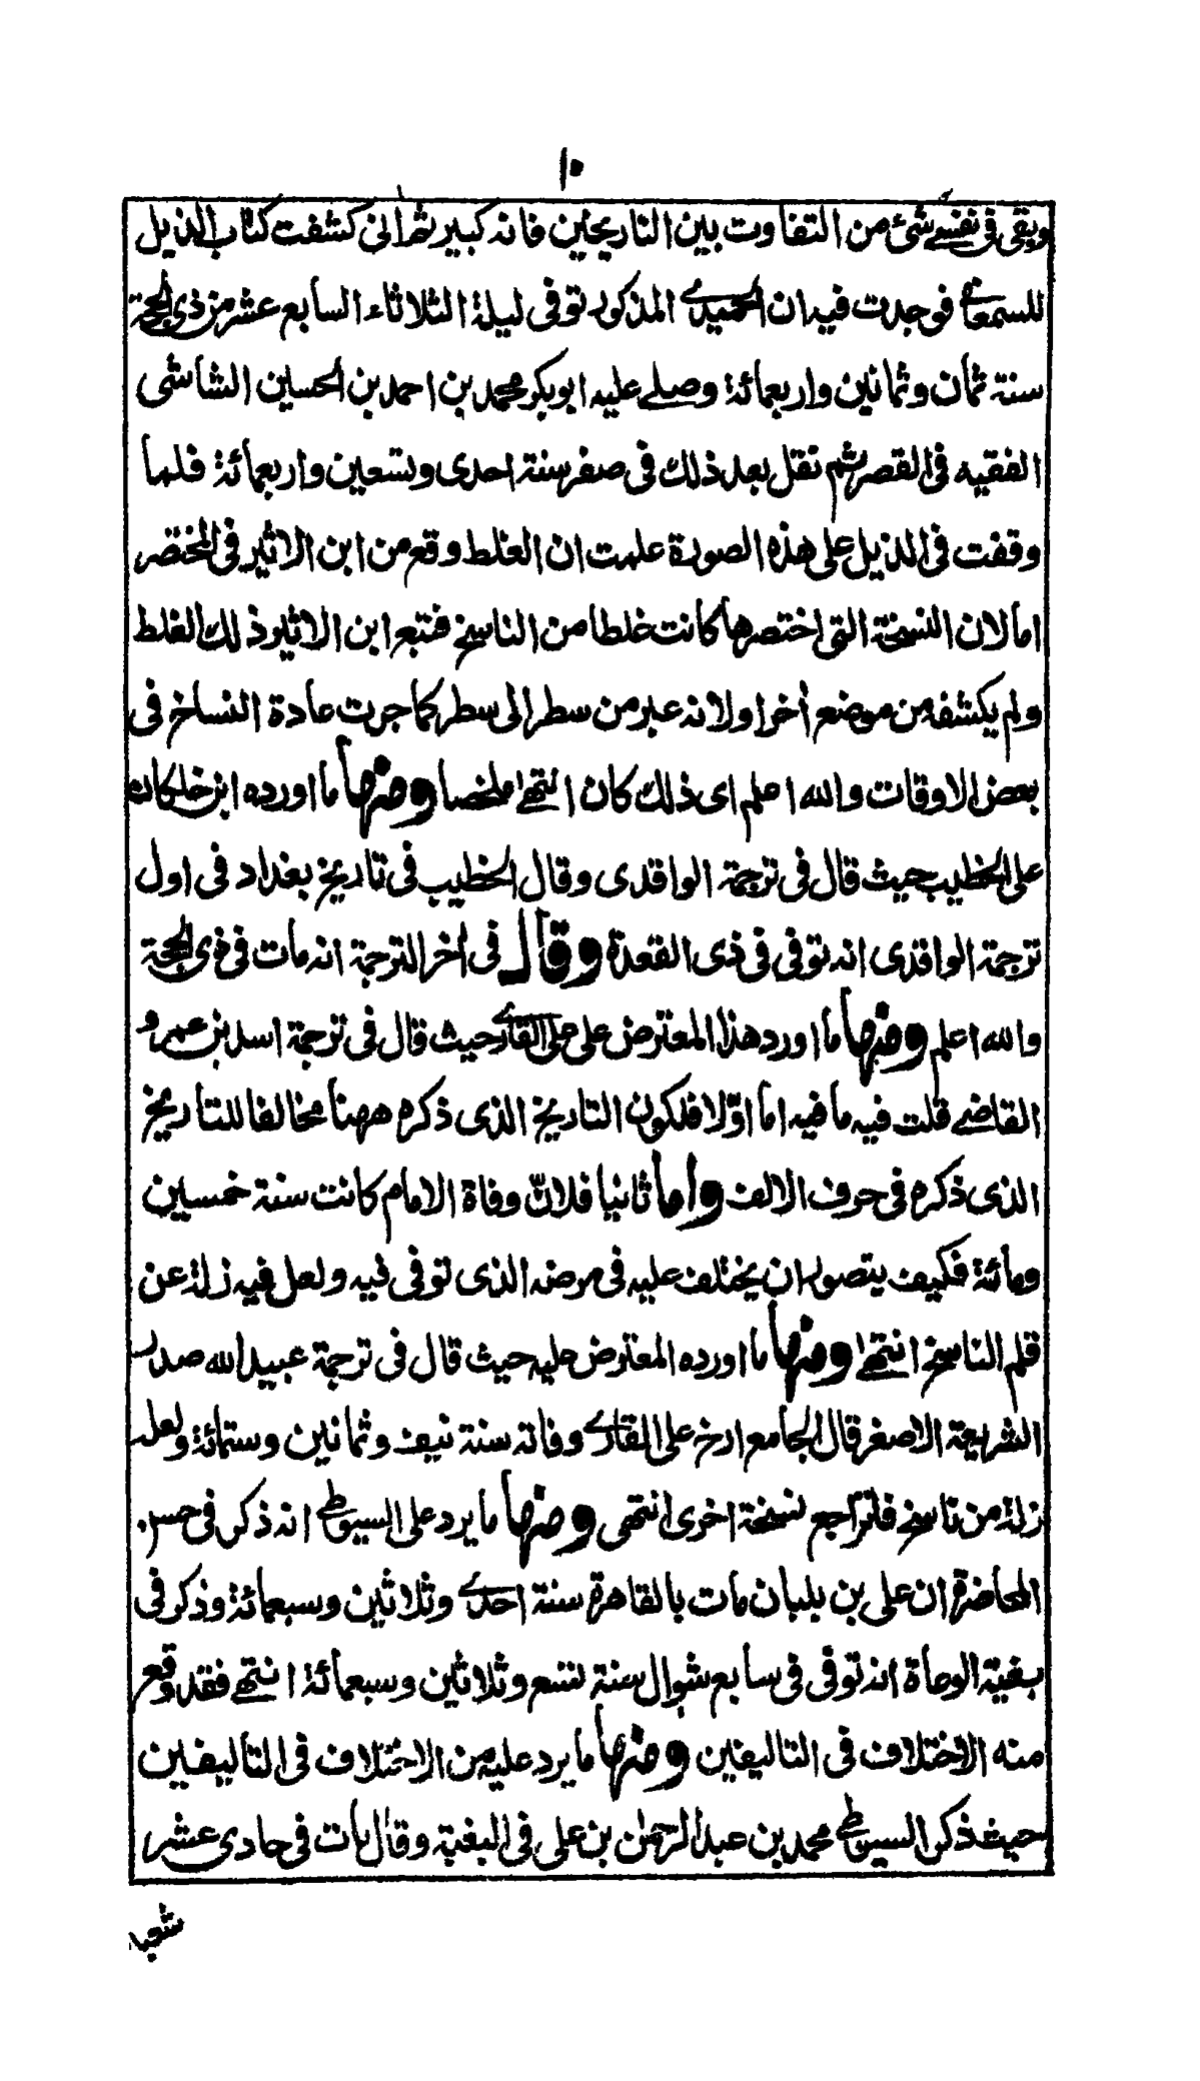 ١٠
وبقى فى نفسى شئ من التفاوت بين التاريخين فانه كبير ثم انى كشفت كتاب الذيل
للسمعانى فوجدت فيه ان الحميدى المذكور توفى ليلة الثلاثاء السابع عشر من ذى الحجة
سنة ثمان وثمانين واربعمائة وصلى عليه ابو بكر محمد بن احمد بن الحسين الشاشى
الفقيه فى القصر ثم نقل بعد ذلك فى صفر سنة احدى وتسعين واربعمائة فلما
وقفت فى الذيل على هذه الصورة علمت ان الغلط وقع من ابن الاثير فى المختصر
اما لان النسخة التى اختصرها كانت خلطا من الناسخ فتبع ابن الاثير ذلك الغلط
ولم يكشفه من موضع أخر او لانه عبر من سطر الى سطر كما جرت عادة النساخ فى
بعض الاوقات والله اعلم اى ذلك كان انتهى ملخصا ومنها ما اورده ابن خلكان
على الخطيب حيث قال فى ترجمة الواقدى وقال الخطيب فى تاريخ بغداد فى اول
ترجمة الواقدى انه توفى فى ذى القعدة وقال فى أخر الترجمة انه مات فى ذى الحجة
والله اعلم ومنها ما اورد هذا المعترض على على القارى حيث قال فى ترجمة اسد بن عمرو
القاضى قلت فيه ما فيه اما اوّلا فلكون التاريخ الذى ذكره ههنا مخالفا للتاريخ
الذى ذكره فى حرف الالف واما ثانيا فلانّ وفاة الامام كانت سنة خمسين
ومائة فكيف يتصور ان يختلف عليه فى مرضه الذى توفى فيه ولعل فيه زلة عن
قلم الناسخ انتهى ومنها ما اورده المعترض عليه حيث قال فى ترجمة عبيد الله صدر
الشريعة الاصغر قال الجامع ارخ على القارى وفاته سنة نيف وثمانين وستمائة ولعله
زلة من ناسخ فلتراجع نسخة اخرى انتهى ومنها ما يرد على السيوطى انه ذكر فى حسن
المحاضرة ان على بن بلبان مات بالقاهرة سنة احدى وثلاثين وسبعمائة وذكر فى
بغية الوعاة انه توفى فى سابع شوال سنة تسع وثلاثين وسبعمائة انتهى فقد وقع
منه الاختلاف فى التاليفين ومنها ما يرد عليه من الاختلاف فى التاليفين
حيث ذكر السيوطى محمد بن عبد الرحمن بن على فى البغية وقال مات فى حادى عشر